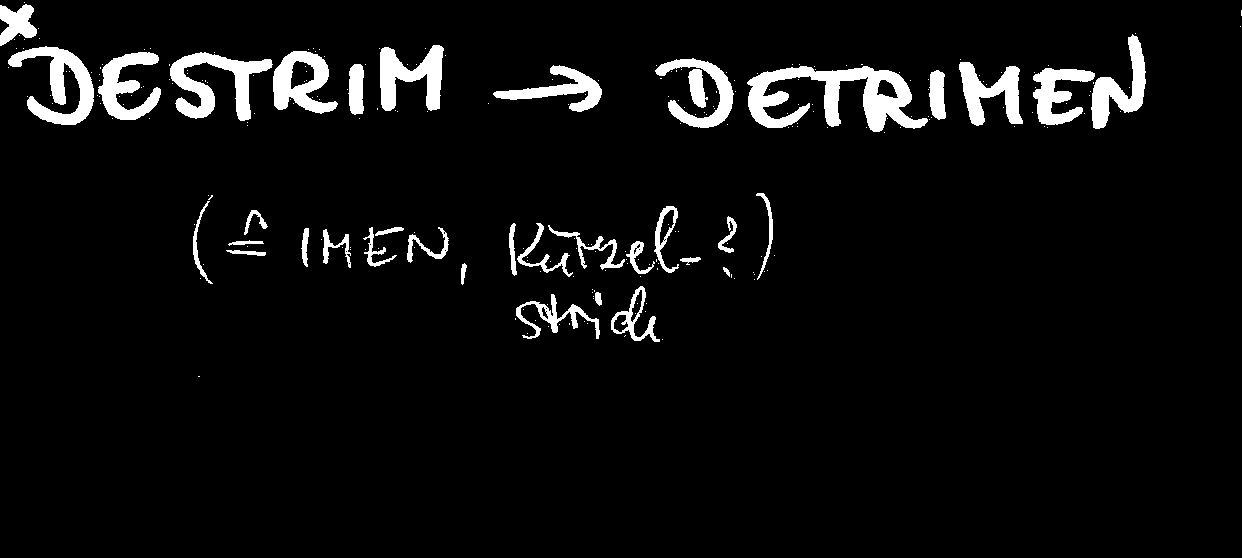 × DESTRIM → DETRIMEN
(≙ IMEN, Kürzel-?)
strich